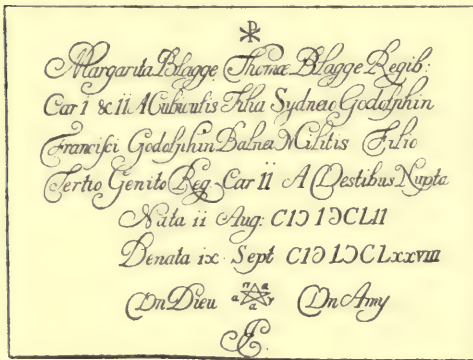 ☧
Margarita Blagge Thomæ Blagge Regib:
Car I & II A Cubiculis Filia Sydneio Godolphin
Francisci Godolphin Balnei Militis Filio
Tertio Genito Reg Car II A Vestibus Nupta
Nata ii Aug: CIↃ IↃCLII
Denata ix Sept CIↃ IↃCLxxviii
Un Dieu Un Amy